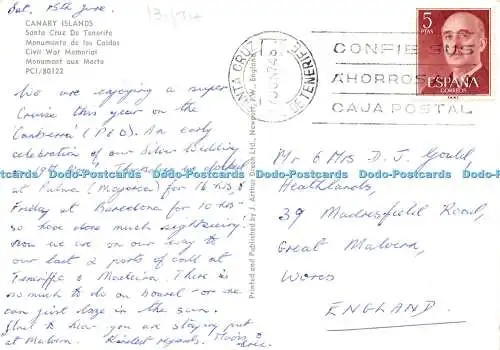 Sat. 15th June.
CANARY ISLANDS
Santa Cruz De Tenerife
Monumento de los Caidos
Civil War Memorial
Monument aux Morts
PCI/80122
We are enjoying a super
Cruise this year on the
"Canberra" (P & O). An early
celebration of our Silver Wedding
on 19th. Thursday we docked
at Palma (Majorca) for 16 hrs, &
Friday at Barcelona for 10 hrs -
so have done much sightseeing!
Now we are on our way to
our last 2 ports of call at
Teneriffe & Madeira. There is
so much to do on board - or one
can just laze in the sun.
Glad to hear you are staying put
at Malvern. Kindest regards.
Printed and Published by J. Arthur Dixon Ltd., Newport, I.W., England
SANTA CRUZ
DE TENERIFE
CONFIE SUS
AHORROS
CAJA POSTAL
5
PTAS
ESPAÑA
CORREOS
Mr & Mrs D. J. Gould,
Heathlands,
39 Madresfield Road,
Great Malvern,
Worcs
ENGLAND.
Dodo-Postcards Dodo-Postcards Dodo-Postcards Dodo-Postcards Dodo-Postcards